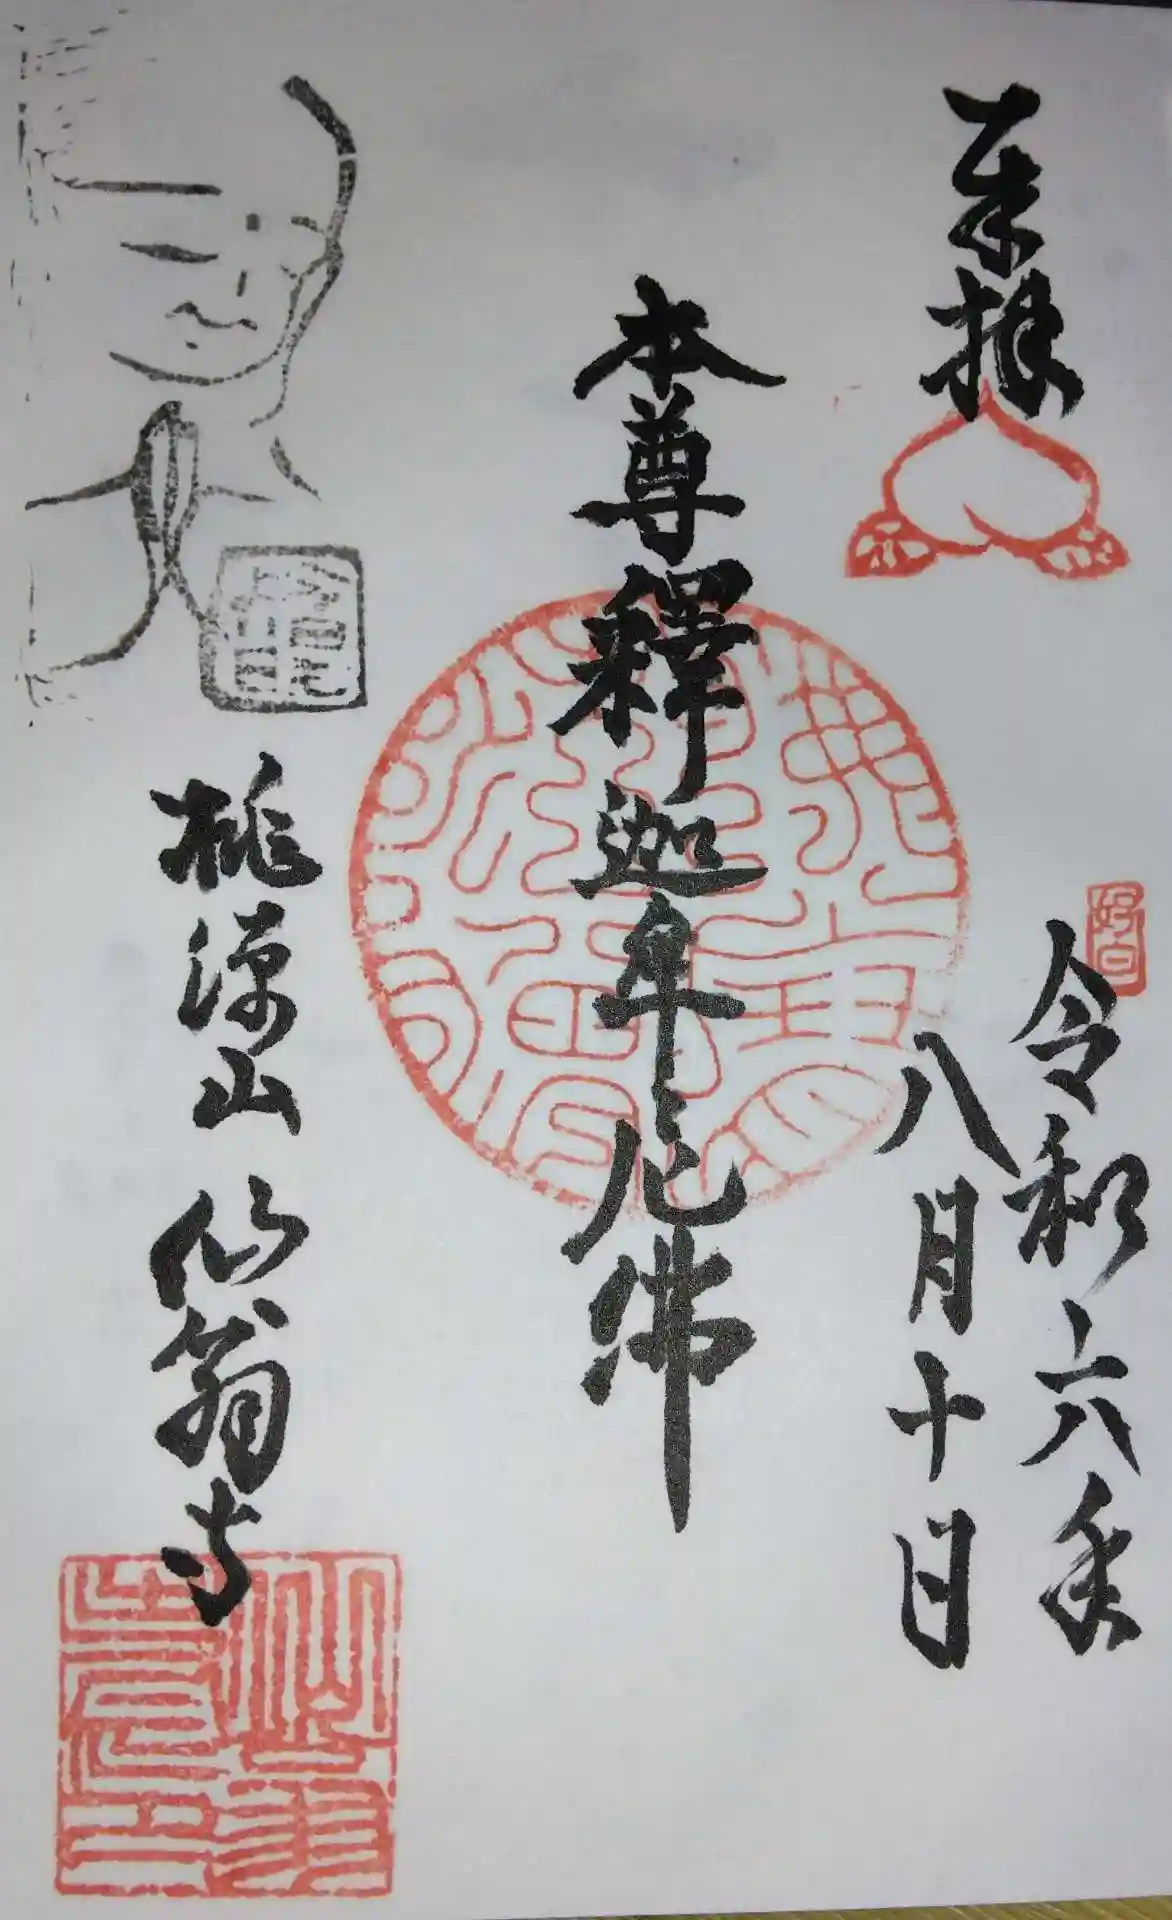 奉拝
令和六年
八月十日
本尊釋迦牟尼佛
桃源山 仙翁寺
好日